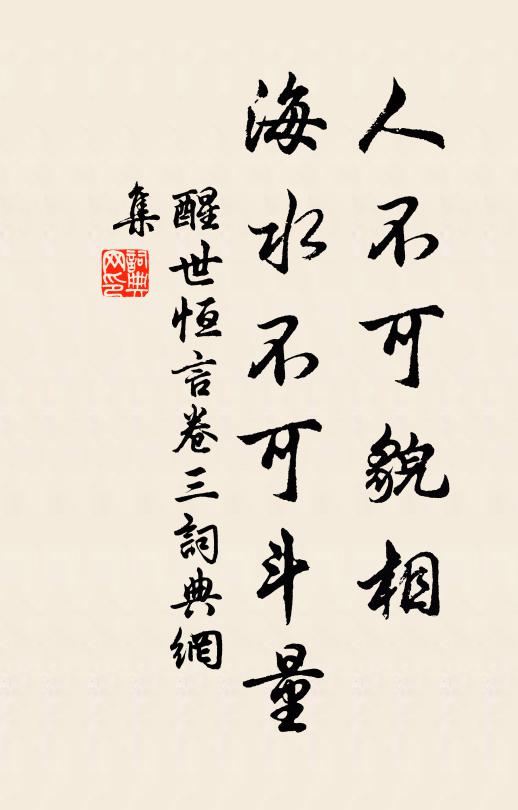 人不可貌相
海水不可斗量
醒世恒言卷三詞典網
集
詞典網印